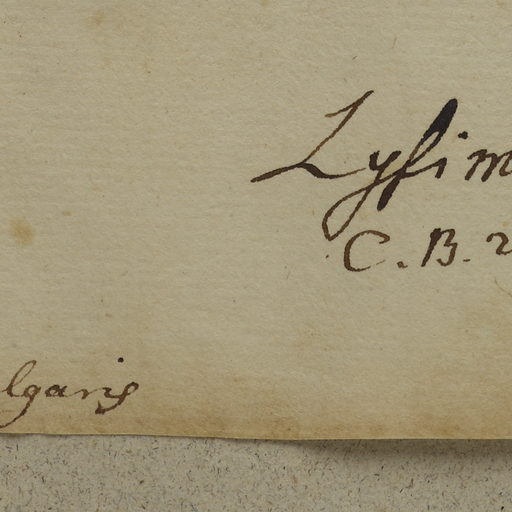 Lysim
C. B. 2
lgaris